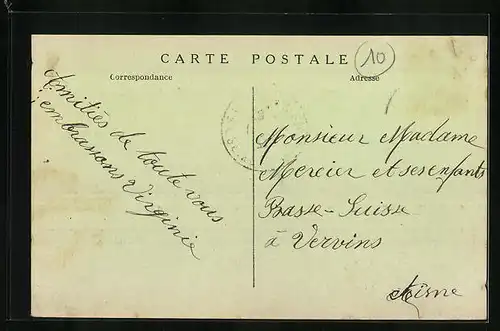 CARTE POSTALE
10
Correspondance
Adresse
Amitiés de toute vous
embrassons Virginie
Monsieur Madame
Mercier et ses enfants
Basse-Suisse
à Vervins
Aisne